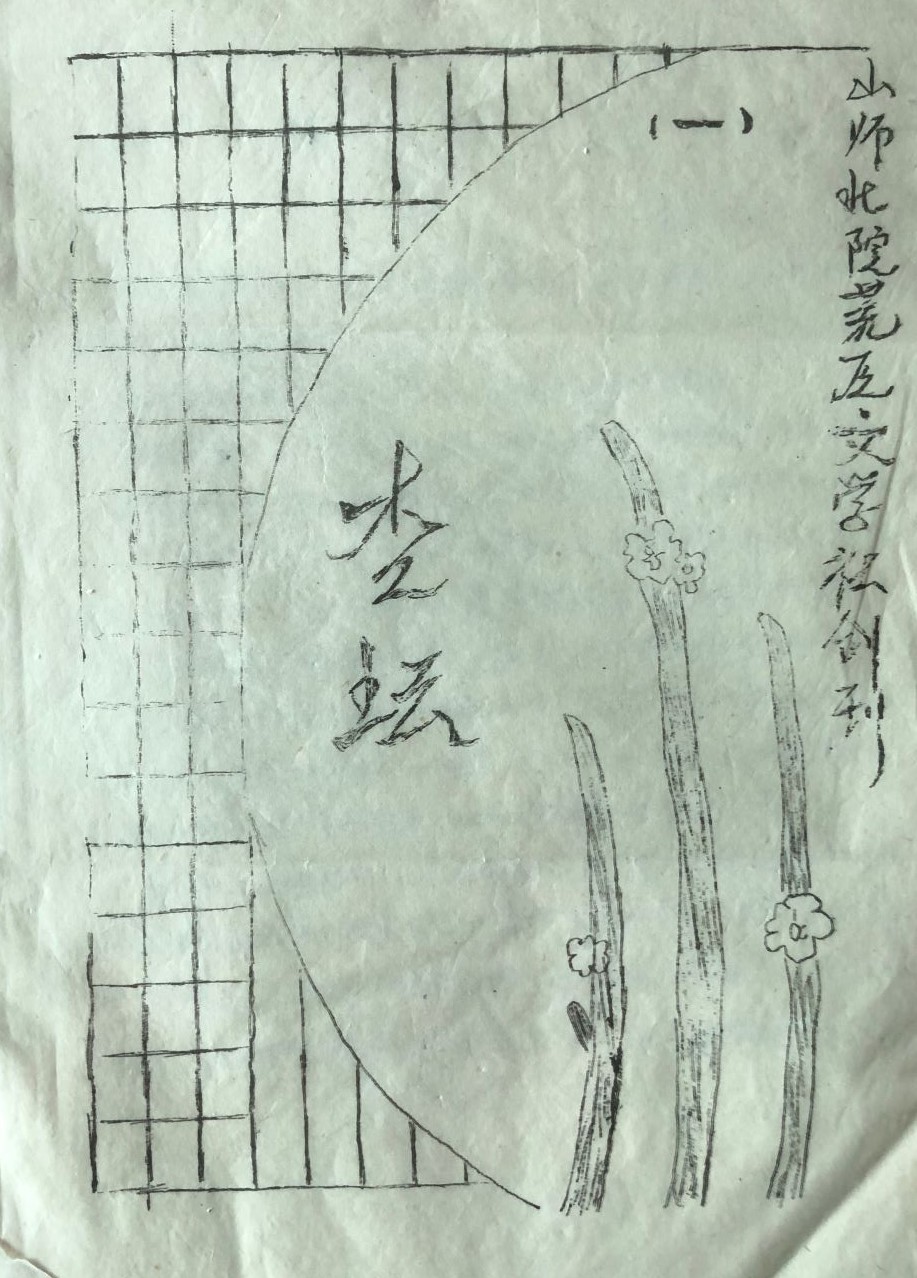 山师北院荒原文学社创刊
(一)
杏坛